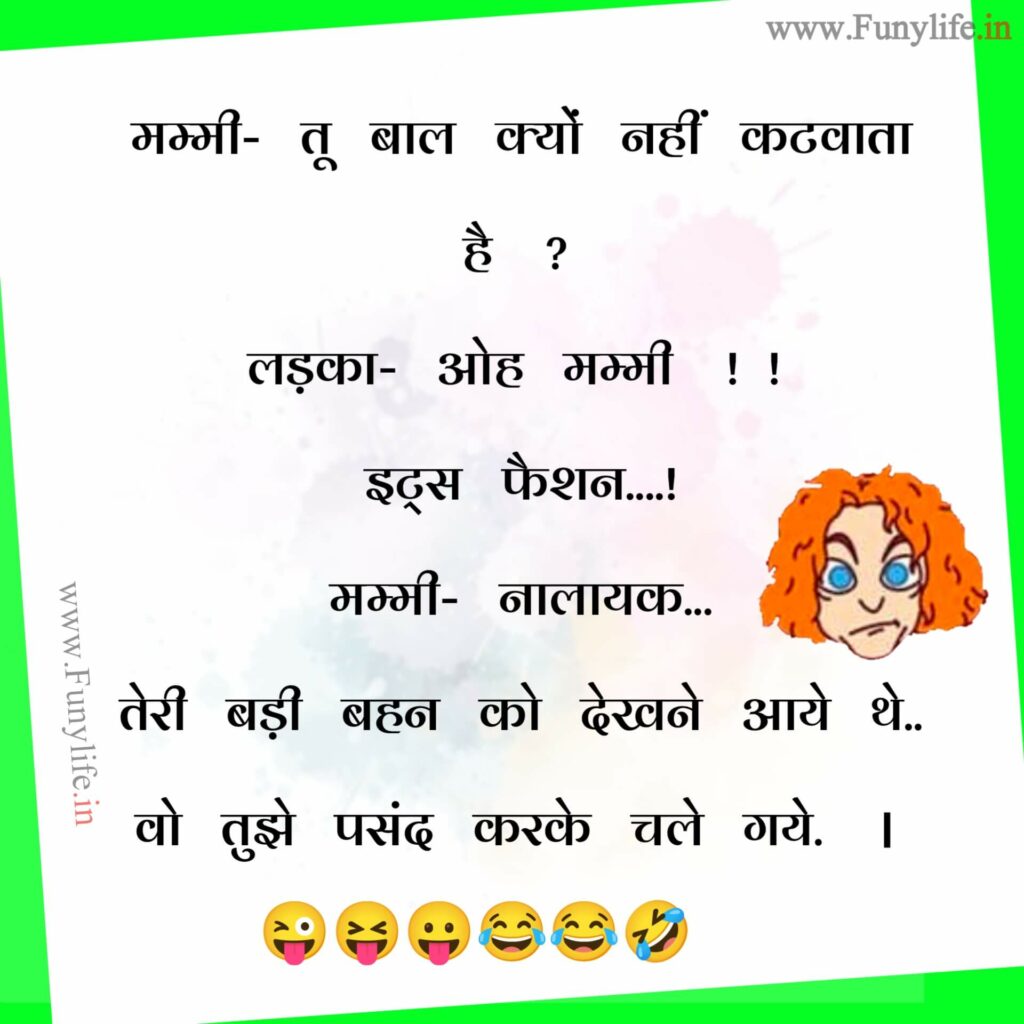 www.Funylife.in
मम्मी- तू बाल क्यों नहीं कटवाता
है ?
लड़का- ओह मम्मी ! !
इट्स फैशन....!
मम्मी- नालायक...
तेरी बड़ी बहन को देखने आये थे..
वो तुझे पसंद करके चले गये. |
www.Funylife.in